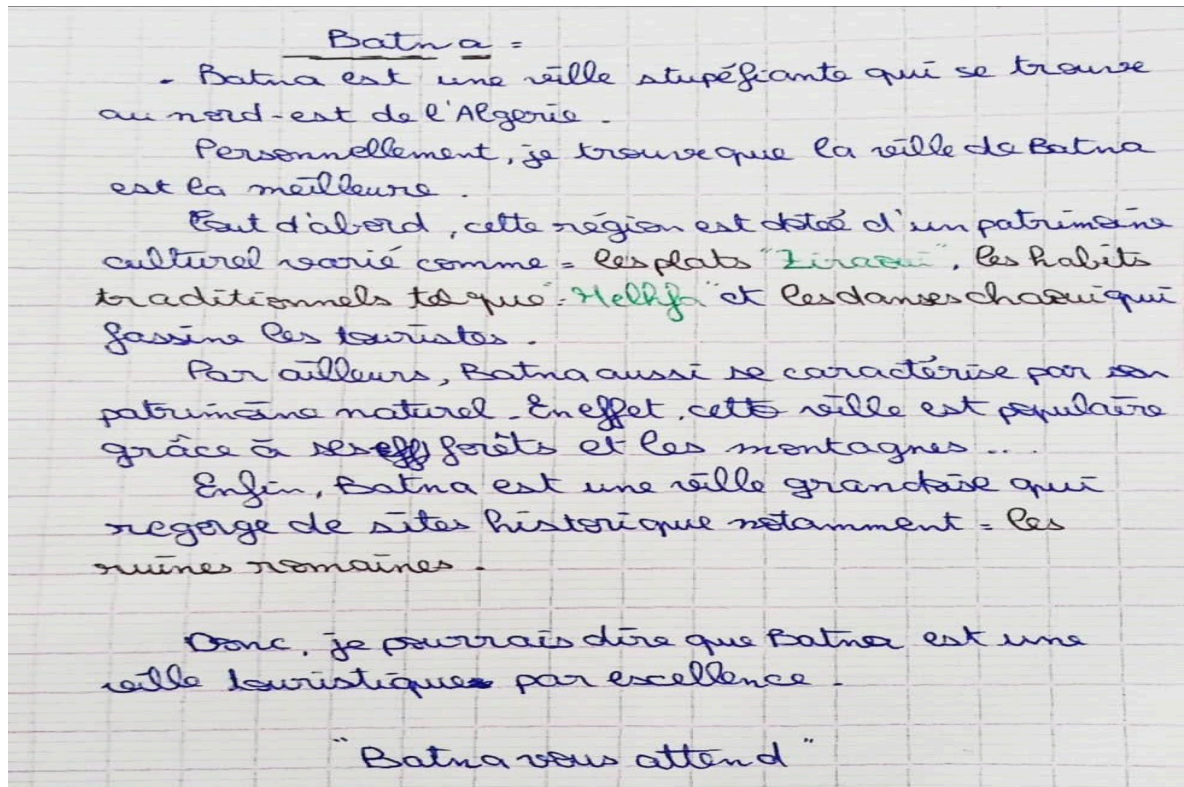 Batna =
- Batna est une ville stupéfiante qui se trouve
au nord-est de l'Algerie.
Personnellement, je trouve que la ville de Batna
est la meilleure.
Tout d'abord, cette région est doteé d'un patrimoine
culturel varié comme = les plats "Ziraoui", les habits
traditionnels tel que "Melhfa" et les danses chaoui qui
fassine les touristes.
Par ailleurs, Batna aussi se caractérise par son
patrimoine naturel. En effet, cette ville est populaire
grâce à ses forêts et les montagnes ...
Enfin, Batna est une ville grandoise qui
regorge de sites historique notamment = les
ruines romaines.
Donc, je pourrais dire que Batna est une
ville touristique par excellence.
"Batna vous attend"